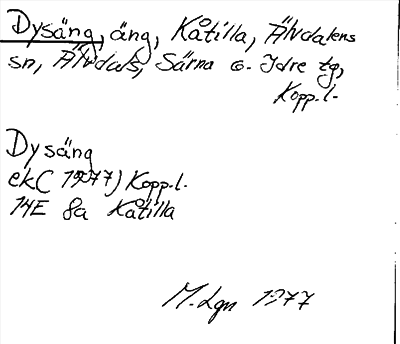 Dysäng, äng, Kåtilla, Älvdalens
sn, Älvdals, Särna o. Idre tg,
Kopp.l.
Dysäng
ekC 1977) Kopp.l.
14E 8a Kåtilla
M.Lgn 1977